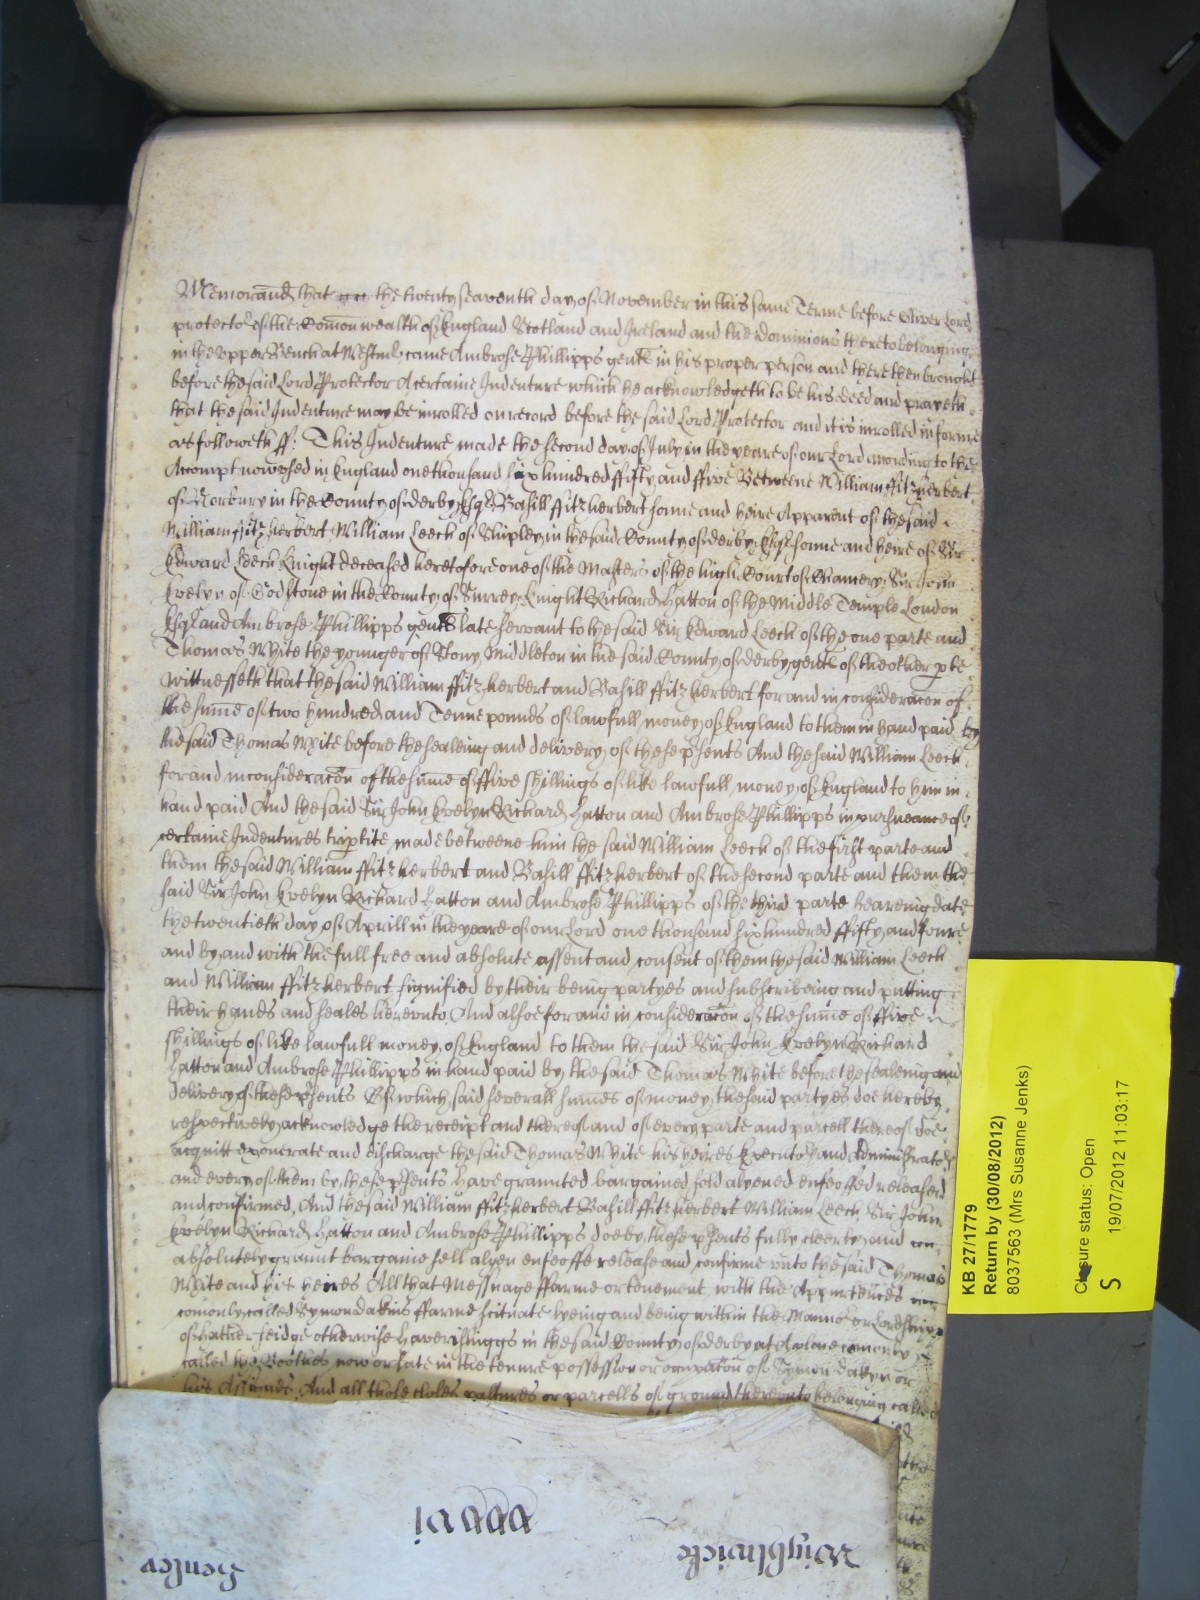 Memorand that on the twenty seaventh day of November in this same Terme before Oliver Lord
protector of the Comon wealth of England Scotland and Ireland and the dominions thereto belonging
in the Upper Bench at Westm came Ambrose Phillipps gent in his proper person and there then brought
before the said Lord Protector A certaine Indenture which he acknowledgeth to be his deed and prayeth
that the said Indenture may be inrolled on record before the said Lord Protector and it is inrolled in forme
as followeth ss. This Indenture made the second day of July in the yeare of our Lord according to the
Accompt now used in England one thousand six hundred ffifty and ffive Betweene William ffitzherbert
of Norbury in the County of derby Esqr Basill ffitzherbert sonne and heire Apparent of the said
William ffitzherbert William Leech of Shipley in the said County of derby Esqr sonne and heire of Sir
Edward Leech Knight deceased heretofore one of the Masters of the high Court of Chancery Sir John
Evelyn of Godstone in the County of Surrey Knight Richard Hatton of the Middle Temple London
Esqr and Ambrose Phillipps gent late servant to the said Sir Edward Leech of the one parte and
Thomas White the younger of Stony Middleton in the said County of derby gent of the other pte
Wittnesseth that the said William ffitzherbert and Basill ffitzherbert for and in consideracon of
the sume of two hundred and Tenne pounds of lawfull money of England to them in hand paid by
the said Thomas White before the sealeing and delivery of these psents And the said William Leech
for and in consideracon of the sume of ffive shillings of like lawfull money of England to him in
hand paid And the said Sir John Evelyn Richard Hatton and Ambrose Phillipps in pursueance of
certaine Indentures triptite made betweene him the said William Leech of the first parte and
them the said William ffitzherbert and Basill ffitzherbert of the second parte and them the
said Sir John Evelyn Richard Hatton and Ambrose Phillipps of the third parte beareing date
the twentieth day of Aprill in the yeare of our Lord one thousand six hundred ffifty and foure
and by and with the full free and absolute assent and consent of them the said William Leech
and William ffitzherbert signified by their being partyes and subscribeing and putting
their hands and seales hereunto And alsoe for and in consideracon of the sume of ffive
shillings of like lawfull money of England to them the said Sir John Evelyn Richard
Hatton and Ambrose Phillipps in hand paid by the said Thomas White before the sealeing and
delivery of these psents Of which said severall sumes of money the said partyes doe hereby
respectively acknowledge the receipt and thereof and of every parte and parcell thereof doe
acquitt exonerate and discharge the said Thomas White his heires Executors and Administrators
and every of them by these psents Have graunted bargained sold alyened enfeoffed released
and confirmed And the said William ffitzherbert Basill ffitzherbert William Leech Sir John
Evelyn Richard Hatton and Ambrose Phillipps doe by these psents fully cleerly and
absolutely graunt bargaine sell alyen enfeoffe release and confirme unto the said Thomas
White and his heires All that Messuage ffarme or tenement with the Appurtences
comonly called Symon dakins ffarme scituate lyeing and being within the Mannor or Lordshipp
of Hatherseidge otherwise Haversheggs in the said County of derby at A place comonly
called the Boothes now or late in the tenure possession or occupacon of Symon dakyn or
his Assignes And all those closes pastures or parcells of ground thereunto belonging called
Wightwicke
Henley
KB 27/1779
Return by (30/08/2012)
8037563 (Mrs Susanne Jenks)
Closure status: Open
S 19/07/2012 11:03:17